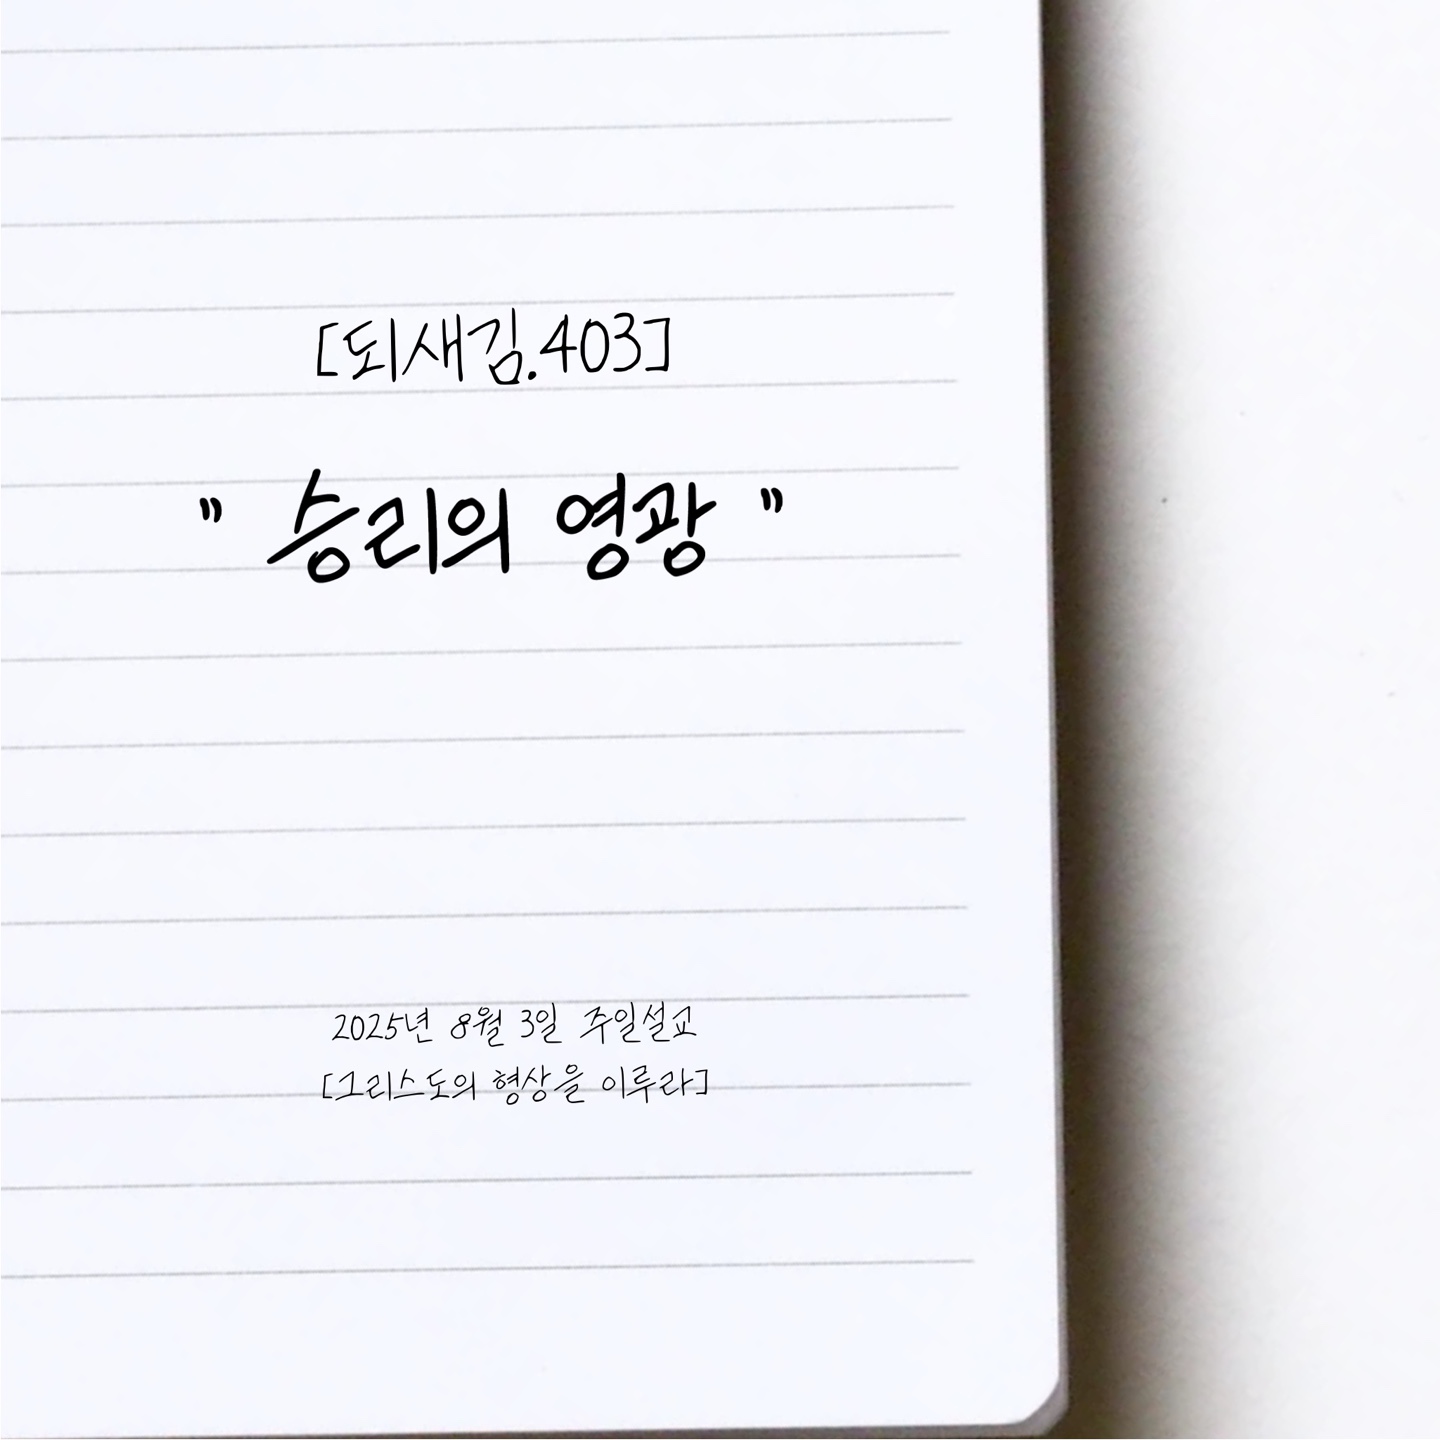 [되새김.403]
" 승리의 영광 "
2025년 8월 3일 주일설교
[그리스도의 형상을 이루라]